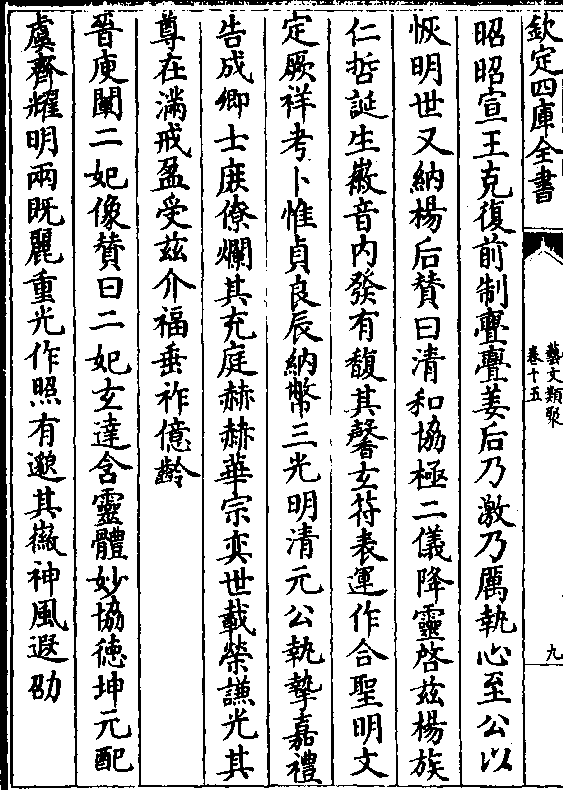 欽定四庫全書
藝文類聚
卷十五
九
昭昭宣王克復前制亹亹姜后乃激乃厲執心至公以
恢明世又納楊后賛曰清和協極二儀降靈啓兹楊族
仁哲誕生徽音内發有馥其馨玄符表運作合聖明文
定厥祥考卜惟貞良辰納幣三光明清元公執摯嘉禮
告成卿士庶僚爛其充庭赫赫華宗奕世載榮謙光其
尊在滿戒盈受兹介福垂祚億齡
晉庾闡二妃像賛曰二妃玄達含靈體妙協德坤元配
虞齊耀明兩既麗重光作照有邈其徽神風遐劭